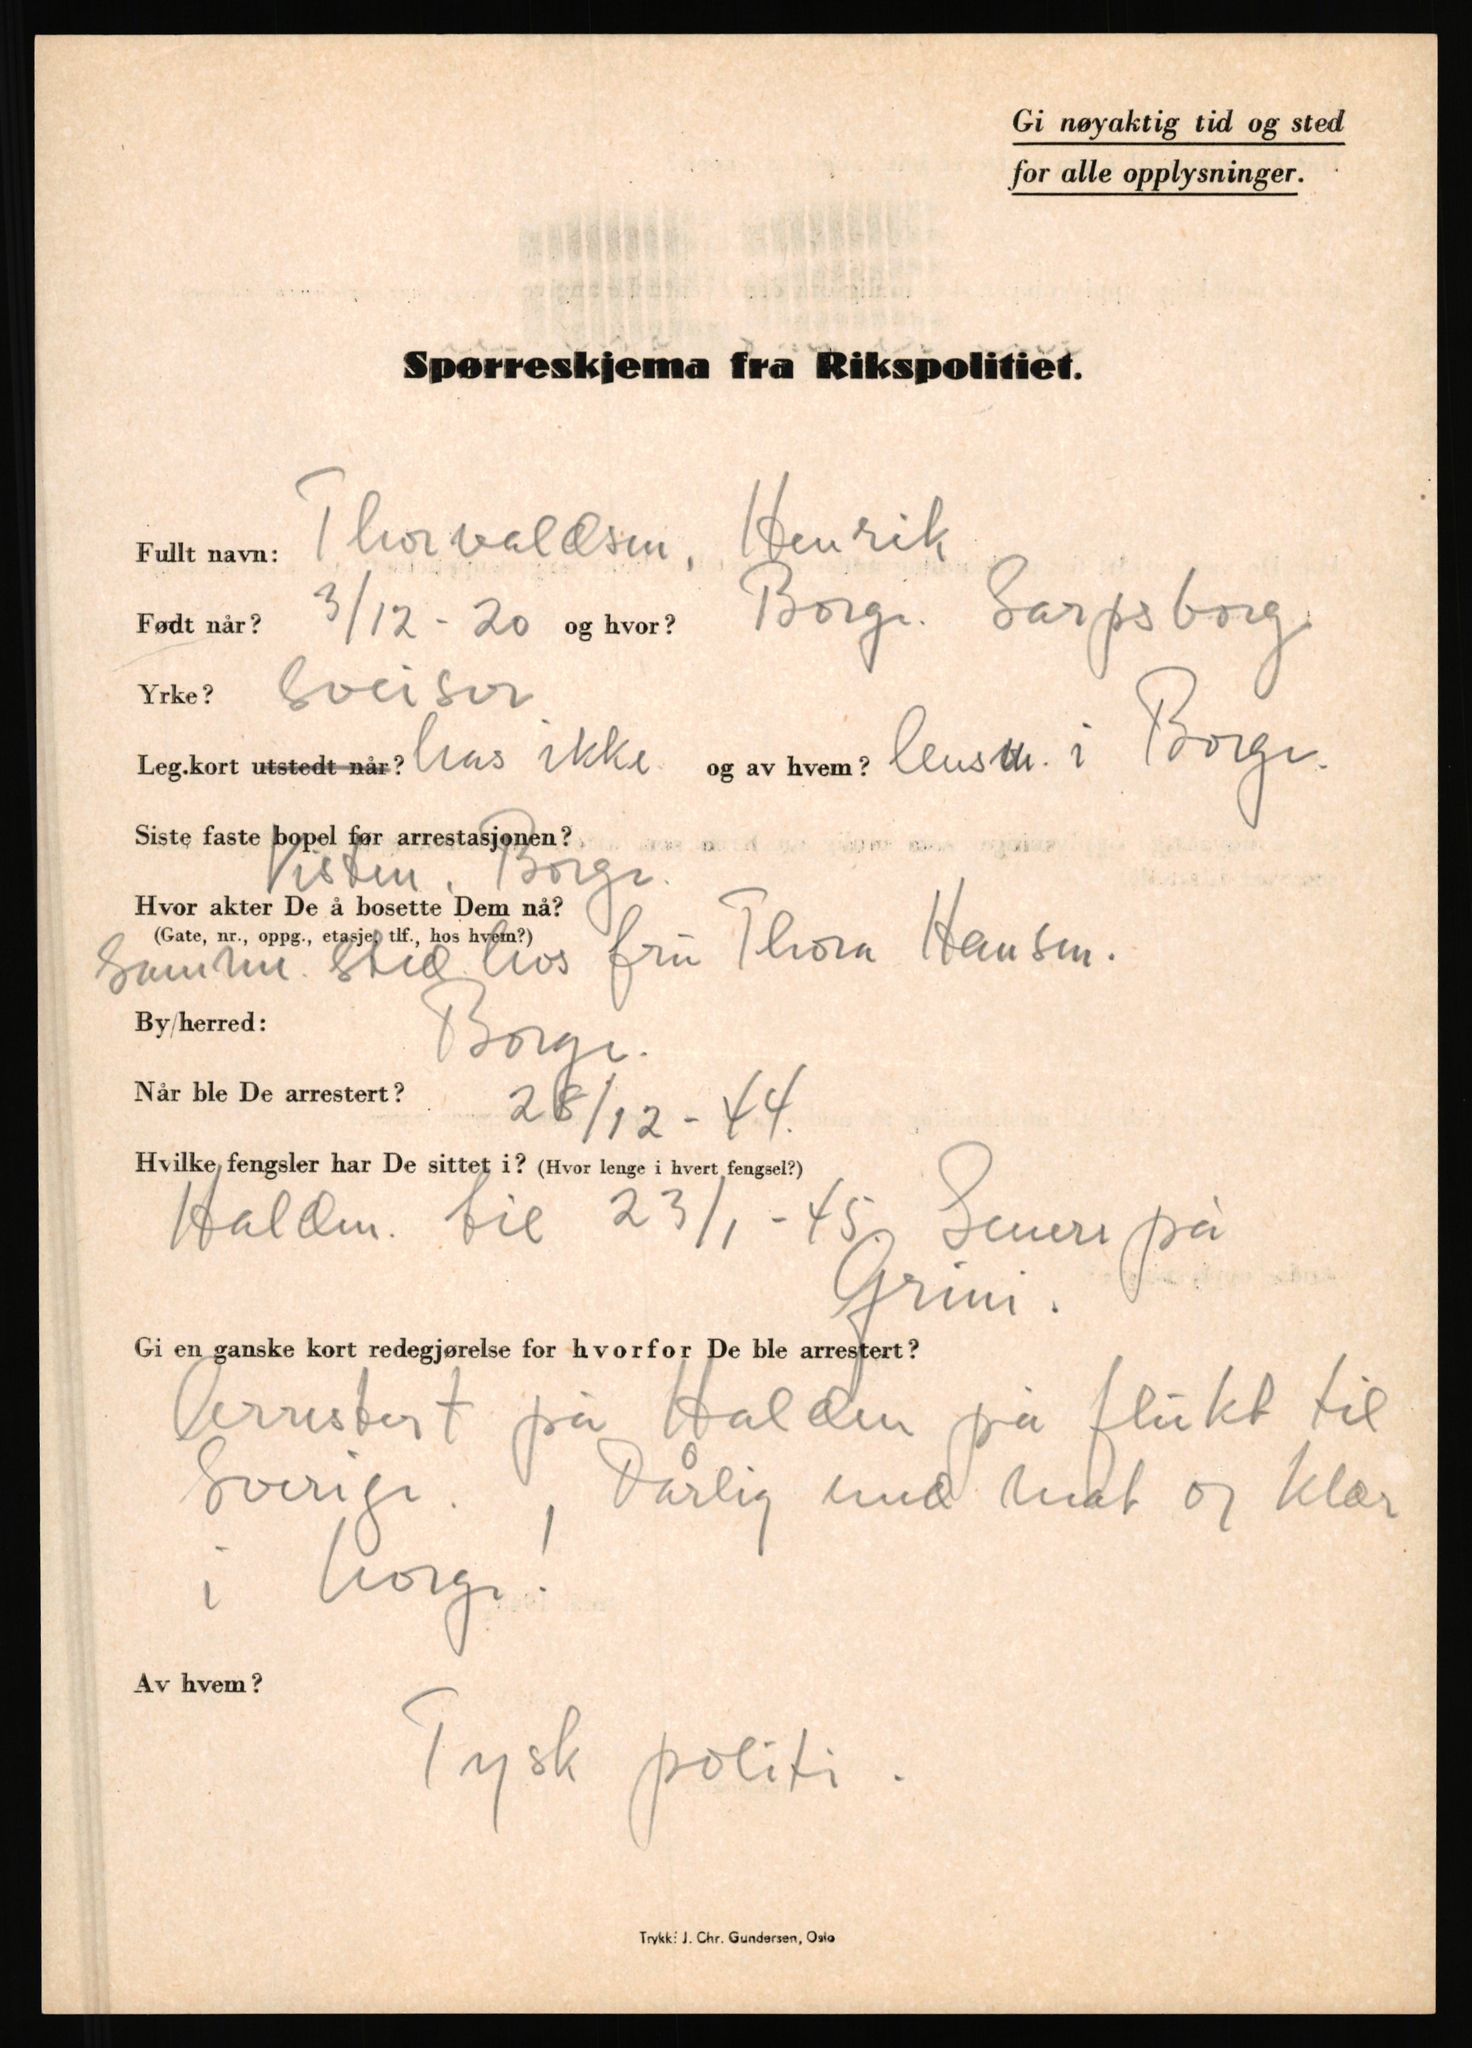 Gi nøyaktig tid og sted
for alle opplysninger.
Spørreskjema fra Rikspolitiet.
Fullt navn: Thorvaldsen, Henrik
Født når? 3/12-20 og hvor? Borge. Sarpsborg.
Yrke? Sveiser
Leg.kort utstedt når? har ikke og av hvem? lensm. i Borge.
Siste faste bopel før arrestasjonen?
Visten, Borge.
Hvor akter De å bosette Dem nå?
(Gate, nr., oppg., etasje, tlf., hos hvem?)
Samme sted hos fru Thora Hansen.
By/herred: Borge.
Når ble De arrestert? 28/12-44.
Hvilke fengsler har De sittet i? (Hvor lenge i hvert fengsel?)
Halden. til 23/1-45 Senere på
Grini.
Gi en ganske kort redegjørelse for hvorfor De ble arrestert?
Arrestert på Halden på flukt til
Sverige. Dårlig med mat og klær
i Norge!
Av hvem?
Tysk politi.
Trykk: J. Chr. Gundersen, Oslo